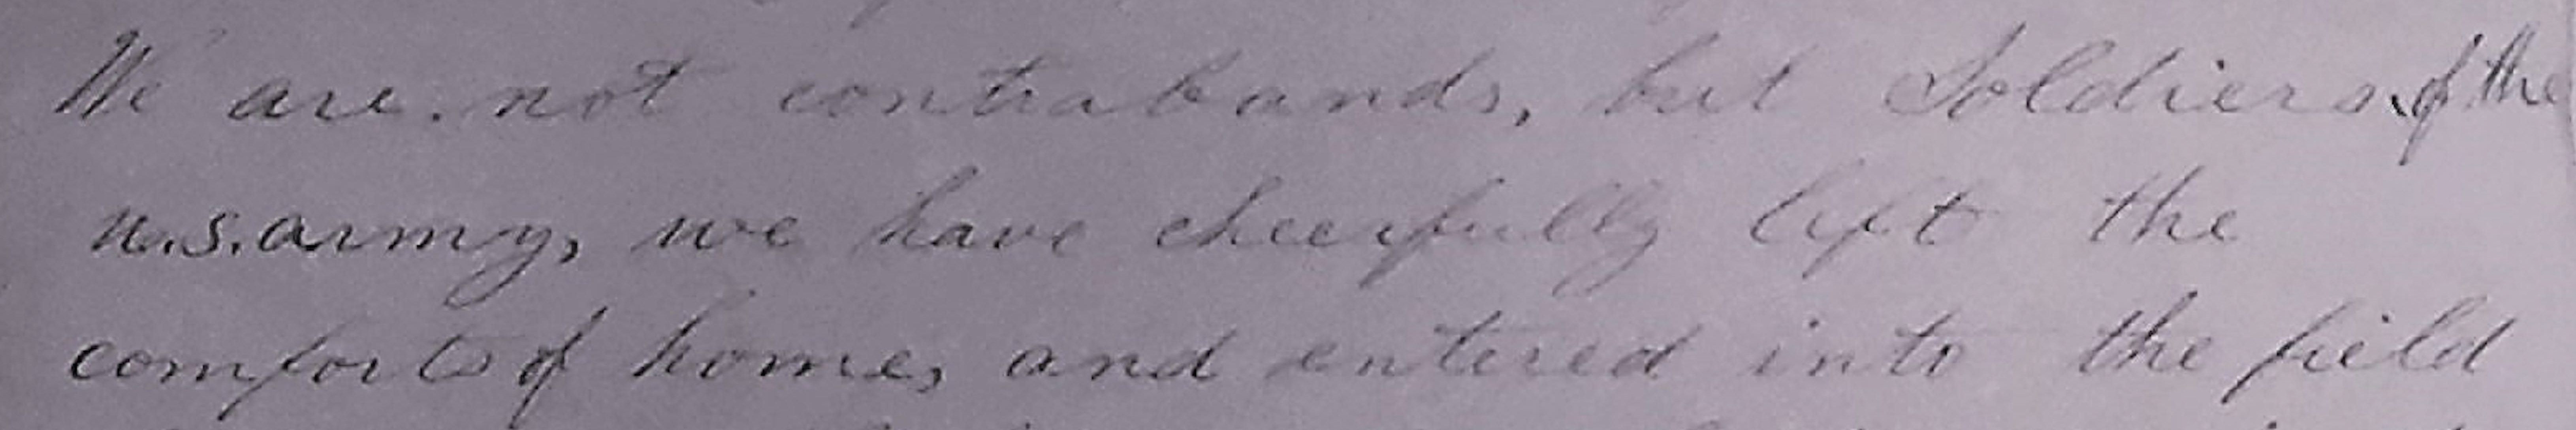 We are. not contrabands, but Soldiers of the
u.s. army, we have cheerfully left the
comforts of home, and entered into the field